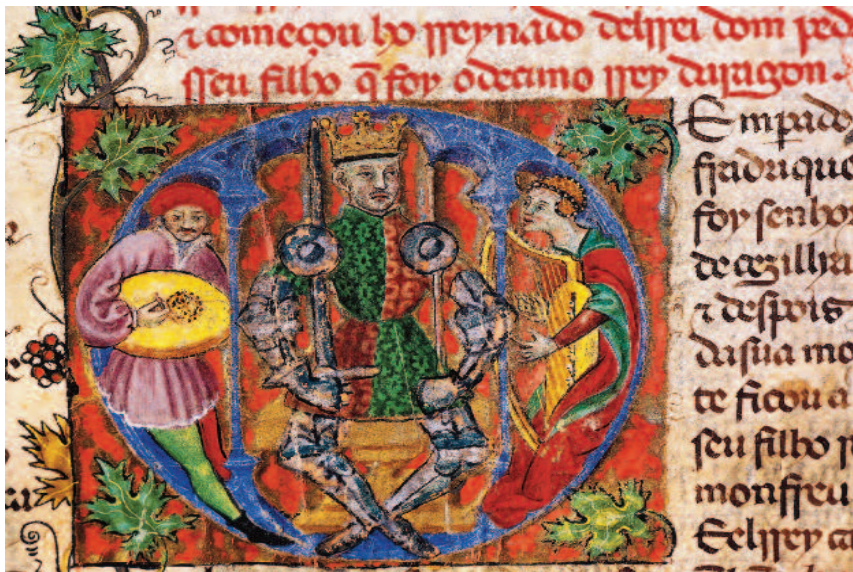 ⁊ começou ho rreynado delrrei dom ped
sseu filho q̃ foy o decimo rrey daragon.
ffradrique
foy senhor
de cezillia
⁊ despois
da sua mo
te ficou a
seu filho
monfreu
E elrrey